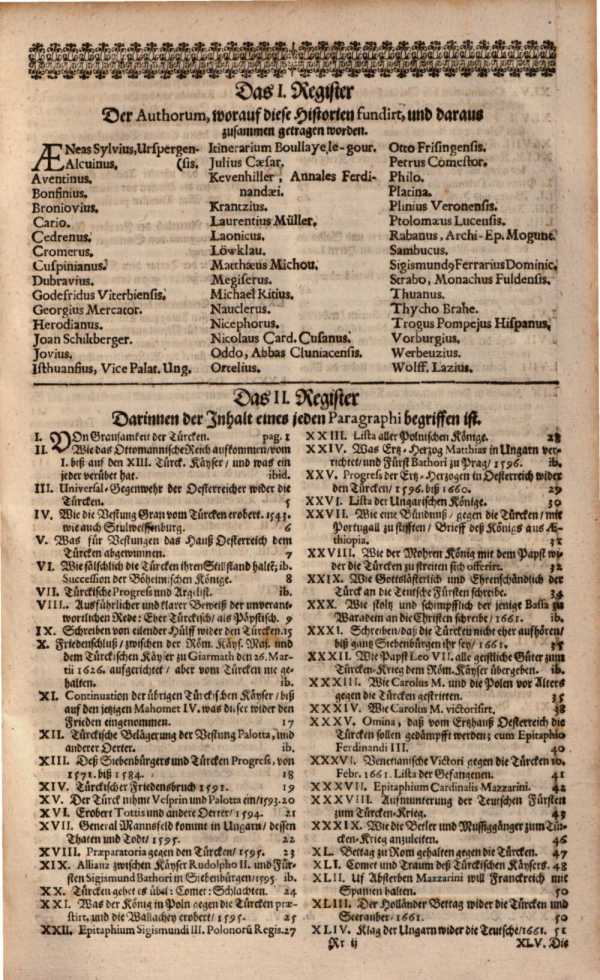 Das I. Register
Der Authorum, worauf diese Historien fundirt, und daraus
zusammen getragen worden.
ÆNeas Sylvius, Urspergen-
Alcuinus. (sis.
Aventinus.
Bonfinius.
Broniovius.
Cario.
Cedrenus.
Cromerus.
Cuspinianus.
Dubravius.
Godefridus Viterbiensis.
Georgius Mercator.
Herodianus.
Joan Schikberger.
Jovius.
Isthuanfius, Vice Palat. Ung.
Itinerarium Boullaye, le-gour.
Julius Cæsar.
Kevenhiller, Annales Ferdi-
nandæi.
Krantzius.
Laurentius Müller.
Laonicus.
Löwklau.
Matthæus Michou.
Megiserus.
Michael Kitius.
Nauclerus.
Nicephorus.
Nicolaus Card. Cusanus.
Oddo, Abbas Cluniacensis.
Ortelius.
Otto Frisingensis.
Petrus Comestor.
Philo.
Platina.
Plinius Veronensis.
Ptolomæus Lucensis.
Rabanus, Archi-Ep. Mogunt.
Sambucus.
Sigismundꝰ Ferrarius Dominic.
Strabo, Monachus Fuldensis.
Thuanus.
Thycho Brahe.
Trogus Pompejus Hispanus.
Vorburgius.
Werbeuzius.
Wolff. Lazius.
Das II. Register
Darinnen der Inhalt eines jeden Paragraphi begriffen ist.
I. VOn Grausamkeit der Türcken. pag. 1
II. Wie das Ottomannische Reich aufkommen/vom
I. biß auf den XIII. Türck. Käyser/ und was ein
jeder verübet hat. ibid.
III. Universal-Gegenwehr der Oesterreicher wider die
Türcken. 5
IV. Wie die Vestung Gran vom Türcken erobert. 1543.
wie auch Stulweissenburg. 6
V. Was für Vestungen das Hauß Oesterreich dem
Türcken abgewinnen. 7
VI. Wie fälschlich die Türcken ihren Stillstand halte; ib.
Succession der Böheimischen Könige. 8
VII. Türckische Progress und Arglist. ib.
VIII. Ausführlicher und klarer Beweiß der unverant-
wortlichen Rede: Eher Türckisch/ als Päpstisch. 9
IX. Schreiben von eilender Hülff wider den Türcken. 15
X. Friedenschluß/ zwischen der Röm. Käys. Maj. und
dem Türckischen Käyser zu Giarmath den 26. Mar-
tii 1626. aufgerichtet/ aber vom Türcken nie ge-
halten. ib.
XI. Continuation der übrigen Türckischen Käyser/ biß
auf den jetzigen Mahomet IV. was dieser wider den
Frieden eingenommen. 17
XII. Türckische Belägerung der Vestung Palotta, und
anderer Oerter. ib.
XIII. Deß Siebenbürgers und Türcken Progress, von
1571. biß 1584. 18
XIV. Türckischer Friedensbruch 1591. 19
XV. Der Türck nihmt Vesprin und Palotta ein/1593. 20
XVI. Erobert Tottis und andere Oerter/ 1594. 21
XVII. General Mannsfeld kommt in Ungarn/ dessen
Thaten und Todt/ 1595. 22
XVIII. Præparatoria gegen den Türcken/ 1595. 23
XIX. Allianz zwischen Käyser Rudolpho II. und Für-
sten Sigismund Bathori in Siebenbürgen/1595. ib.
XX. Türcken gehet es übel: Comet: Schlachten. 24
XXI. Was der König in Poln gegen die Türcken præ-
stirt, und die Wallachey erobert/ 1595. 25
XXII. Epitaphium Sigismundi III. Polonorũ Regis. 27
XXIII. Lista aller Polnischen Könige. 28
XXIV. Was Ertz-Herzog Matthias in Ungarn ver-
richtet/ und Fürst Bathori zu Prag/ 1596. ib.
XXV. Progress der Ertz-Herzogen in Oesterreich wider
den Türcken/ 1596. biß 1660. 29
XXVI. Lista der Ungarischen Könige. 30
XXVII. Wie eine Bündnuß/ gegen die Türcken/ mit
Portugall zu stifften/ Brief deß Königs aus Æ-
thiopia. 31
XXVIII. Wie der Mohren König mit dem Papst wi-
der die Türcken zu streiten sich offerirt. 32
XXIX. Wie Gottslästerlich und Ehrenschändlich der
Türck an die Teutsche Fürsten schreibe. 34
XXX. Wie stolz und schimpflich der jenige Bassa zu
Waradem an die Christen schreibe/ 1661. ib.
XXXI. Schreiben/ daß die Türcken nicht eher aufhören/
biß gantz Siebenbürgen ihr sey/ 1661. 35
XXXII. Wie Papst Leo VII. alle geistliche Güter zum
Türcken-Krieg dem Röm. Käyser übergeben. ib.
XXXIII. Wie Carolus M. und die Polen vor Alters
gegen die Türcken gestritten. 35
XXXIV. Wie Carolus M. victorisirt. 38
XXXV. Omina, daß vom Ertzhauß Oesterreich die
Türcken sollen gedämpfft werden; cum Epitaphio
Ferdinandi III. 40
XXXVI. Venetianische Victori gegen die Türcken ib.
Febr. 1661. Lista der Gefangenen. 41
XXXVII. Epitaphium Cardinalis Mazzarini. 42
XXXVIII. Aufmunterung der Teutschen Fürsten
zum Türcken-Krieg. 43
XXXIX. Wie die Betler und Müssiggänger zum Tür-
cken-Krieg anzuhalten. 46
XL. Bettag zu Rom gehalten gegen die Türcken. 47
XLI. Comet und Traum deß Türckischen Käysers. 48
XLII. Uf Absterben Mazzarini will Franckreich mit
Spanien halten. 50
XLIII. Der Holländer Bettag wider die Türcken und
Seerauber/ 1661. 50
XLIV. Klag der Ungarn wider die Teutsche/1661. 51
Rr ij XLV. Die